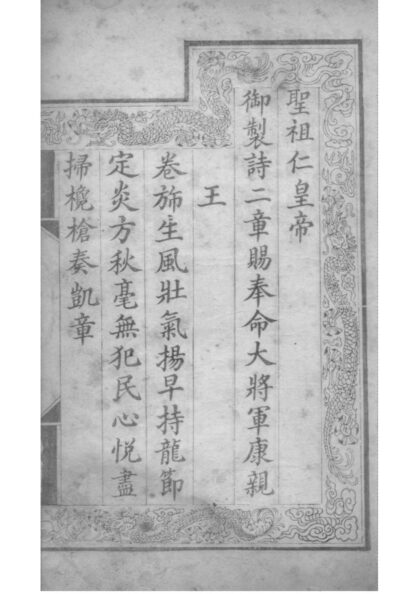 聖祖仁皇帝
御製詩二章賜奉命大將軍康親
王
卷斾生風壯氣揚早持龍節
定炎方秋毫無犯民心悅盡
掃欃槍奏凱章